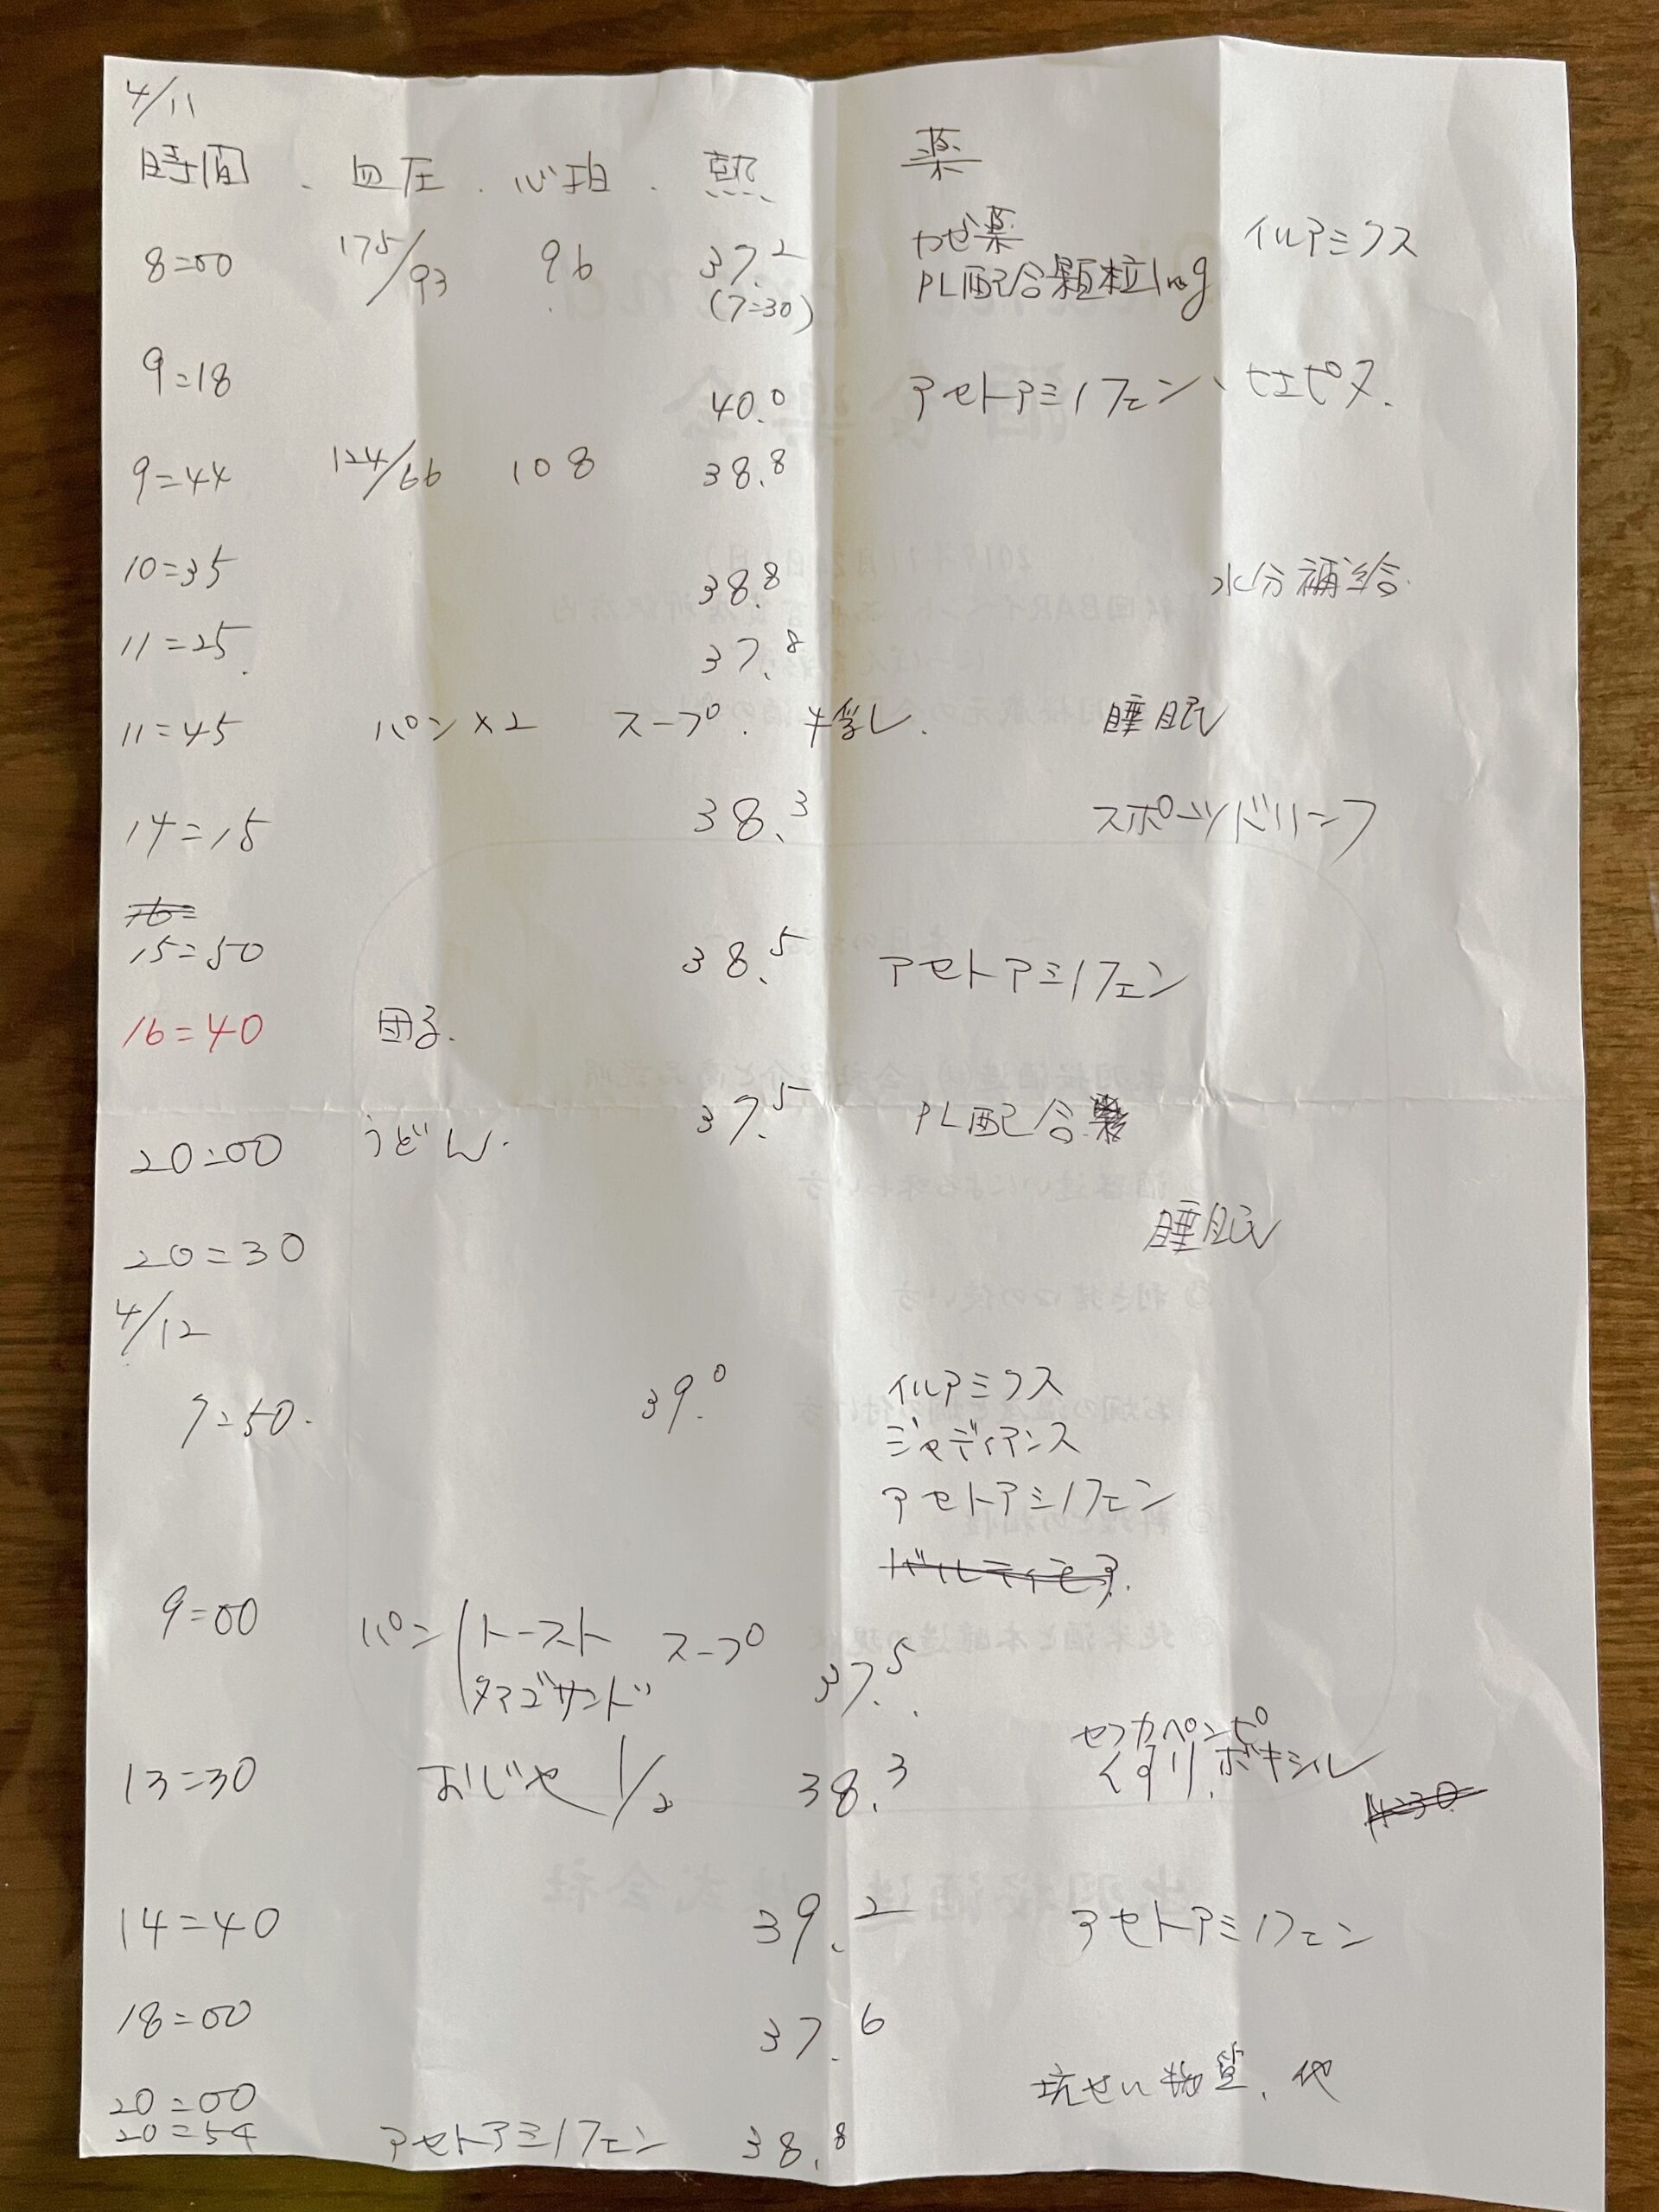 4/11
時間 . 血圧 . 心拍 . 熱 薬
8=00 175/93 96 37.2 (7=30) カゼ薬 イルアミクス
PL配合顆粒1mg
9=18 40.0 アセトアミノフェン、セエピヌ.
9=44 124/66 108 38.8
10=35 38.8 水分補給.
11=25. 37.8
11=45 パン×2 スープ. 牛乳. 睡眠
14=15 38.3 スポーツドリンク
15=50 38.5 アセトアミノフェン
16=40 団子.
20=00 うどん. 37.5 PL配合
20=30 睡眠
4/12
7=50. 39.0 イルアミクス
ジャディアンス
アセトアミノフェン
バルティモア.
9=00 パン(トースト スープ 37.5.
タマゴサンド
13=30 おじや 1/2 38.3 セフカペンピ
ボキシル
14=30
14=40 39.2 アセトアミノフェン
18=00 37.6
20=00 抗せい物質、他
20=54 アセトアミノフェン 38.8